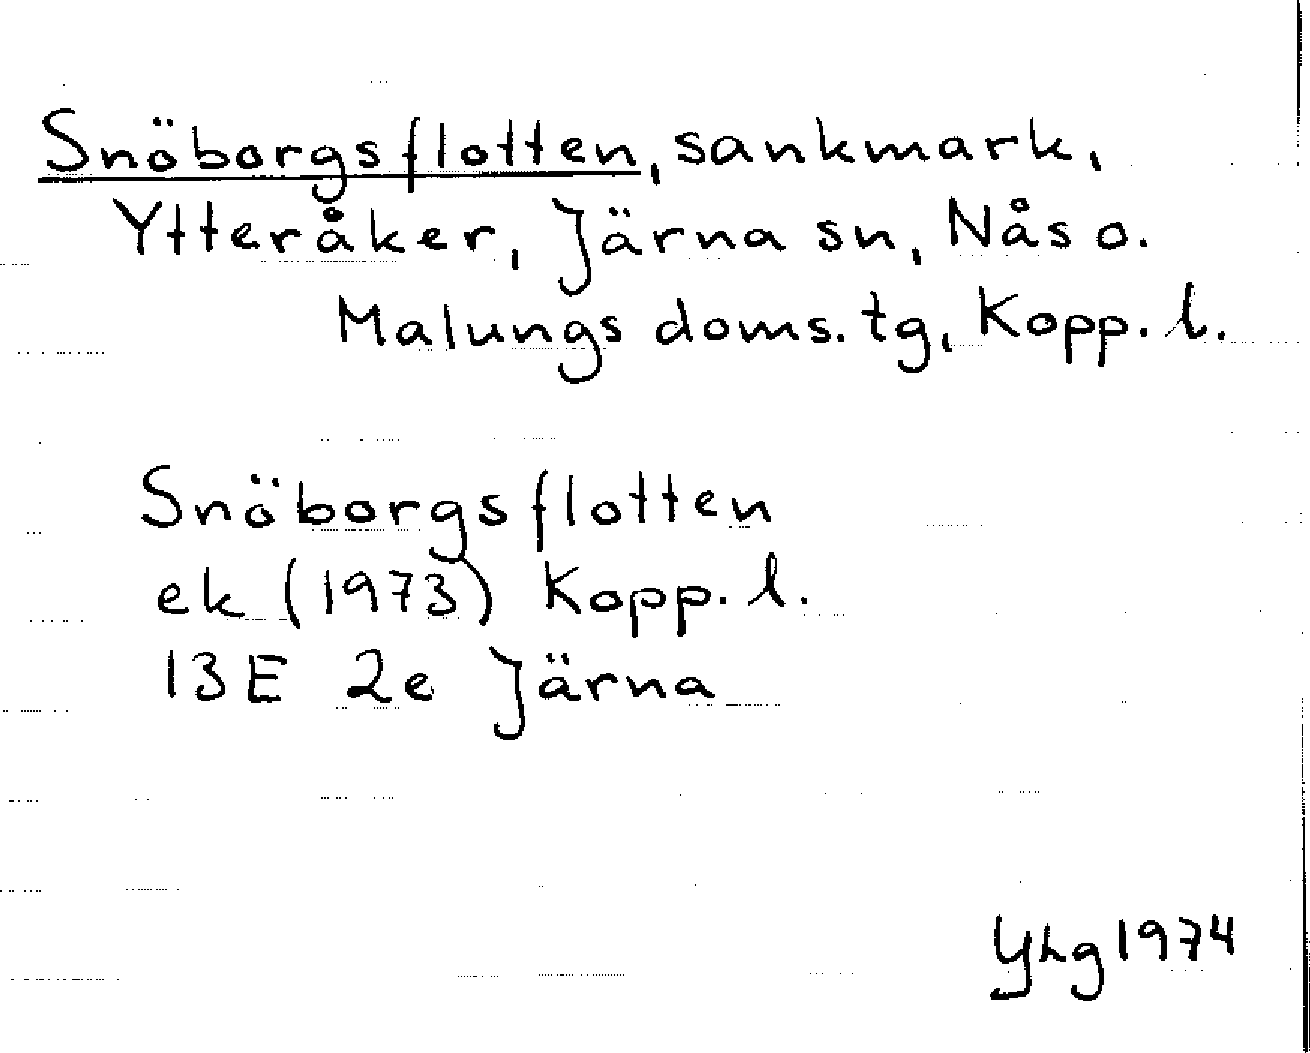 Snöborgsflotten, sankmark,
Ytteråker, Järna sn, Nås o.
Malungs doms. tg, Kopp. l.
Snöborgsflotten
ek (1973) Kopp. l.
13E 2e Järna
Yhg 1974